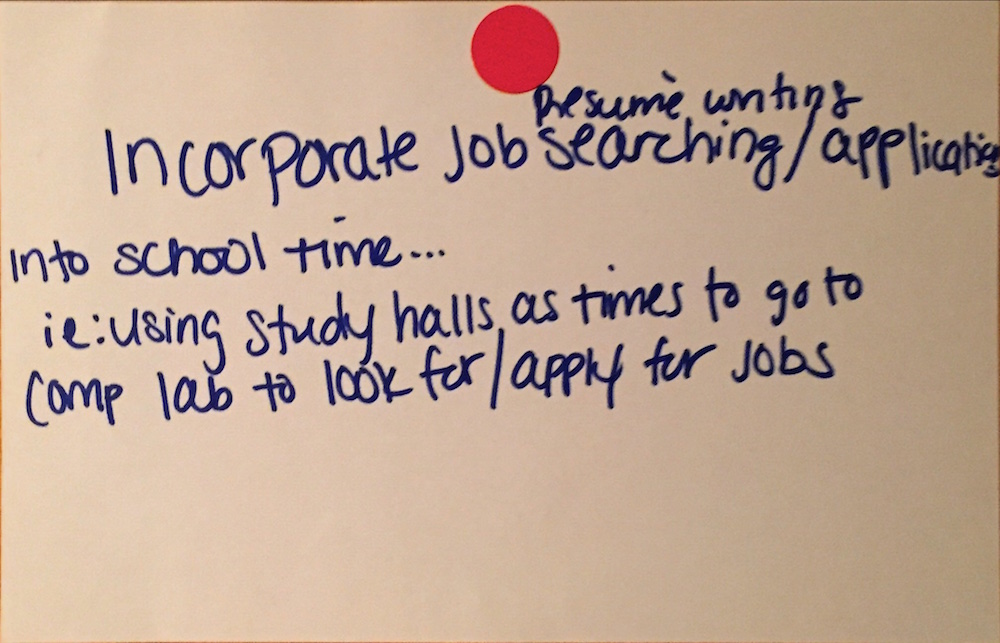 Resumè writing
Incorporate Job searching/applications
into school time...
ie: using study halls as times to go to
comp lab to look for/apply for jobs